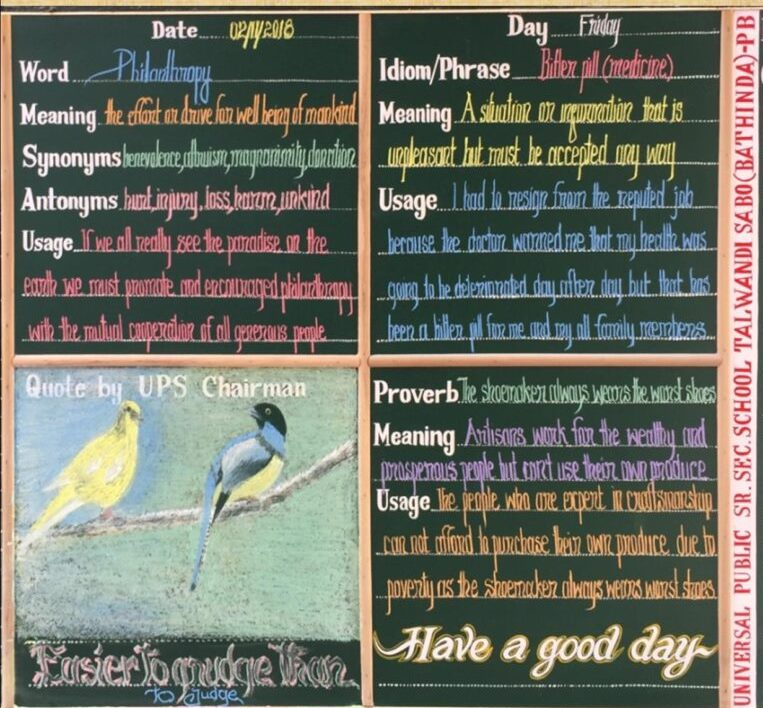 Date 02/11/2018
Word Philanthropy
Meaning the effort or drive for well being of mankind
Synonyms benevolence, altruism, magnanimity, donation
Antonyms hurt, injury, loss, harm, unkind
Usage If we all really see the paradise on the
earth we must promote and encouraged philanthropy
with the mutual cooperation of all generous people
Day Friday
Idiom/Phrase Bitter pill (medicine)
Meaning A situation or information that is
unpleasant but must be accepted any way
Usage I had to resign from the reputed job
because the doctor warned me that my health was
going to be deteriorated day after day but that has
been a bitter pill for me and my all family members
Quote by UPS Chairman
Easier To grudge Than
to Judge
Proverb The shoemaker always wears the worst shoes
Meaning Artisans work for the wealthy and
prosperous people but can't use their own produce
Usage the people who are expert in craftsmanship
can not afford to purchase their own produce due to
poverty as the shoemaker always wears worst shoes
Have a good day
UNIVERSAL PUBLIC SR. SEC. SCHOOL TALWANDI SABO(BATHINDA)-PB